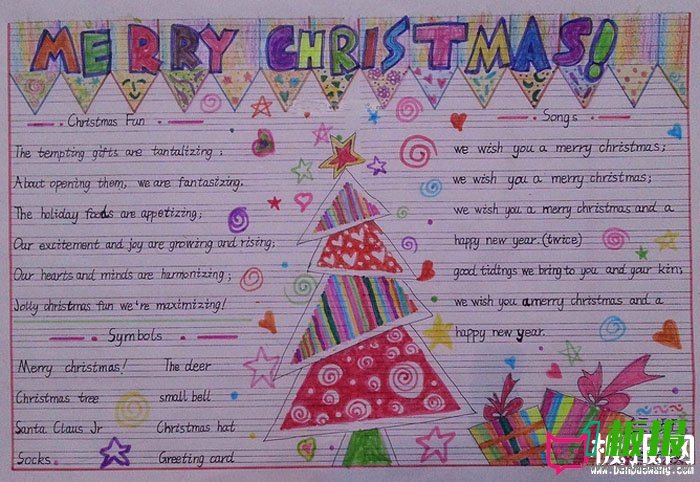 MERRY CHRISTMAS!
Christmas Fun
The tempting gifts are tantalizing;
About opening them, we are fantasizing.
The holiday foods are appetizing;
Our excitement and joy are growing and rising;
Our hearts and minds are harmonizing;
Jolly christmas fun we're maximizing!
Symbols
Merry christmas! The deer
Christmas tree small bell
Santa Claus Jr Christmas hat
Socks Greeting card
Songs
we wish you a merry christmas;
we wish you a merry christmas;
we wish you a merry christmas and a
happy new year.(twice)
good tidings we bring to you and your kin;
we wish you a merry christmas and a
happy new year.
板报网
www.banbaowang.com